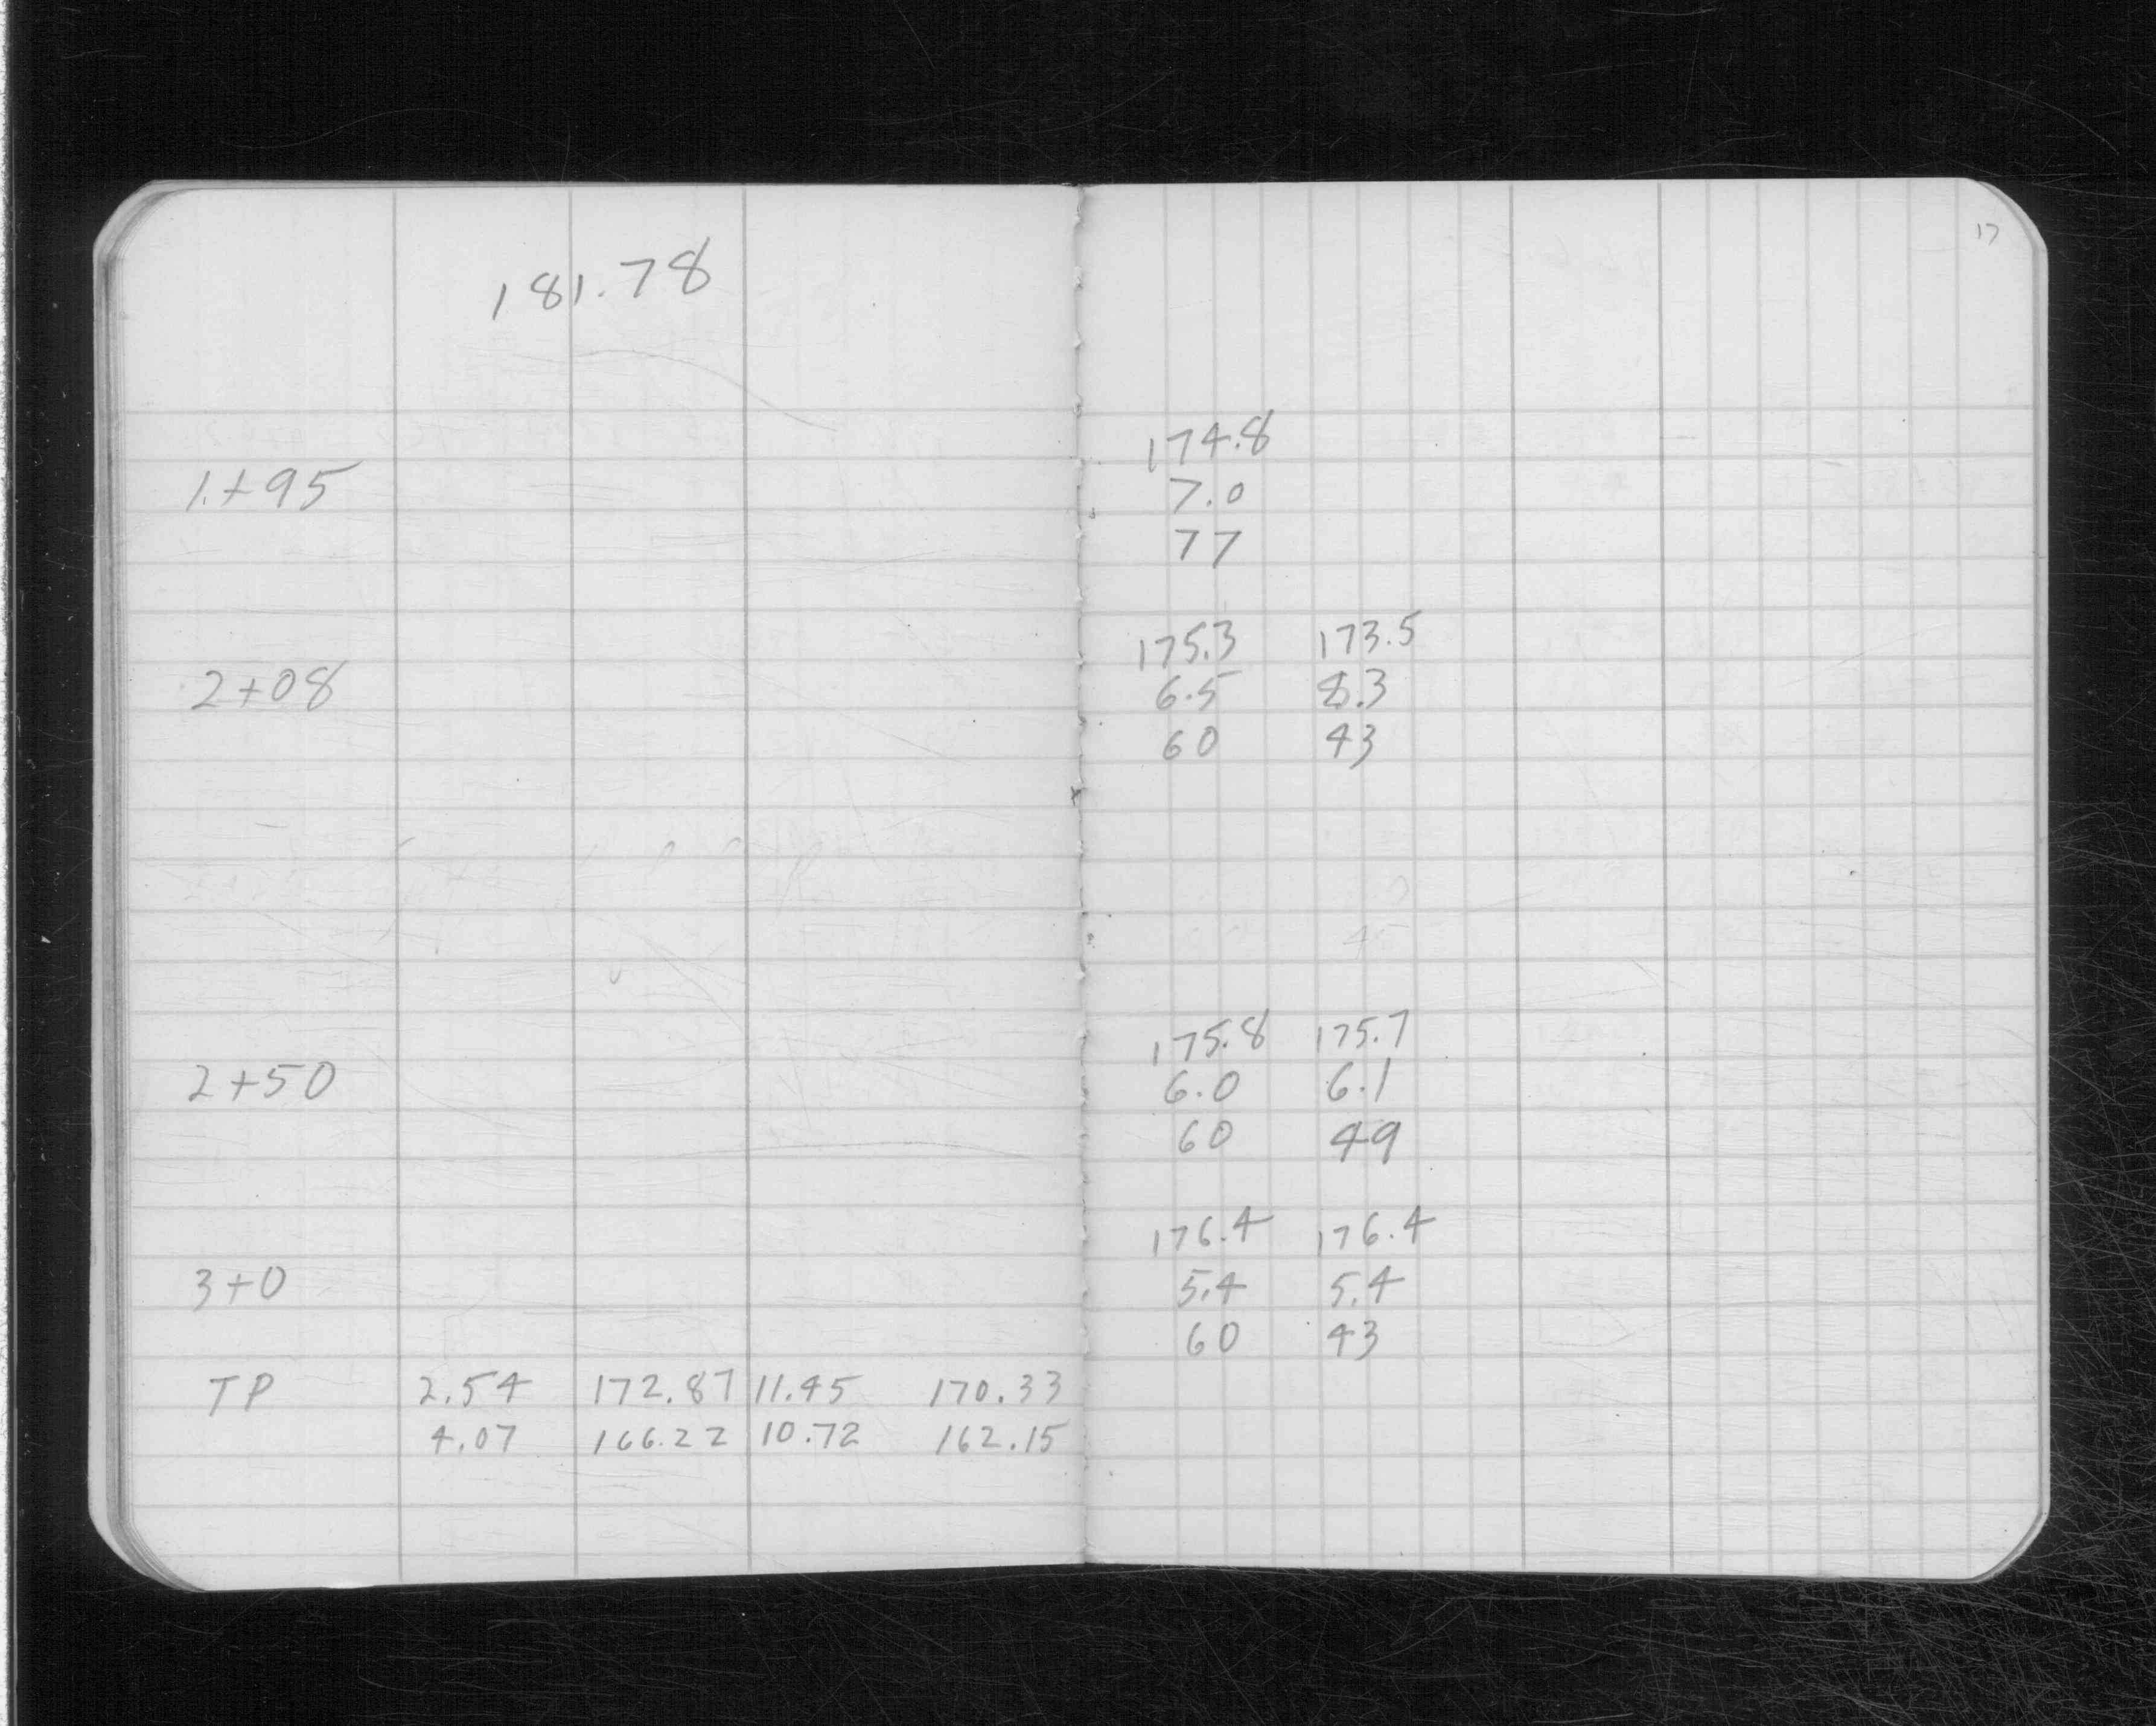 181.78
17
174.8
1+95 7.0
77
175.3 173.5
2+08 6.5 8.3
60 43
175.8 175.7
2+50 6.0 6.1
60 49
176.4 176.4
3+0 5.4 5.4
60 43
TP 2.54 172.87 11.45 170.33
4.07 166.22 10.72 162.15